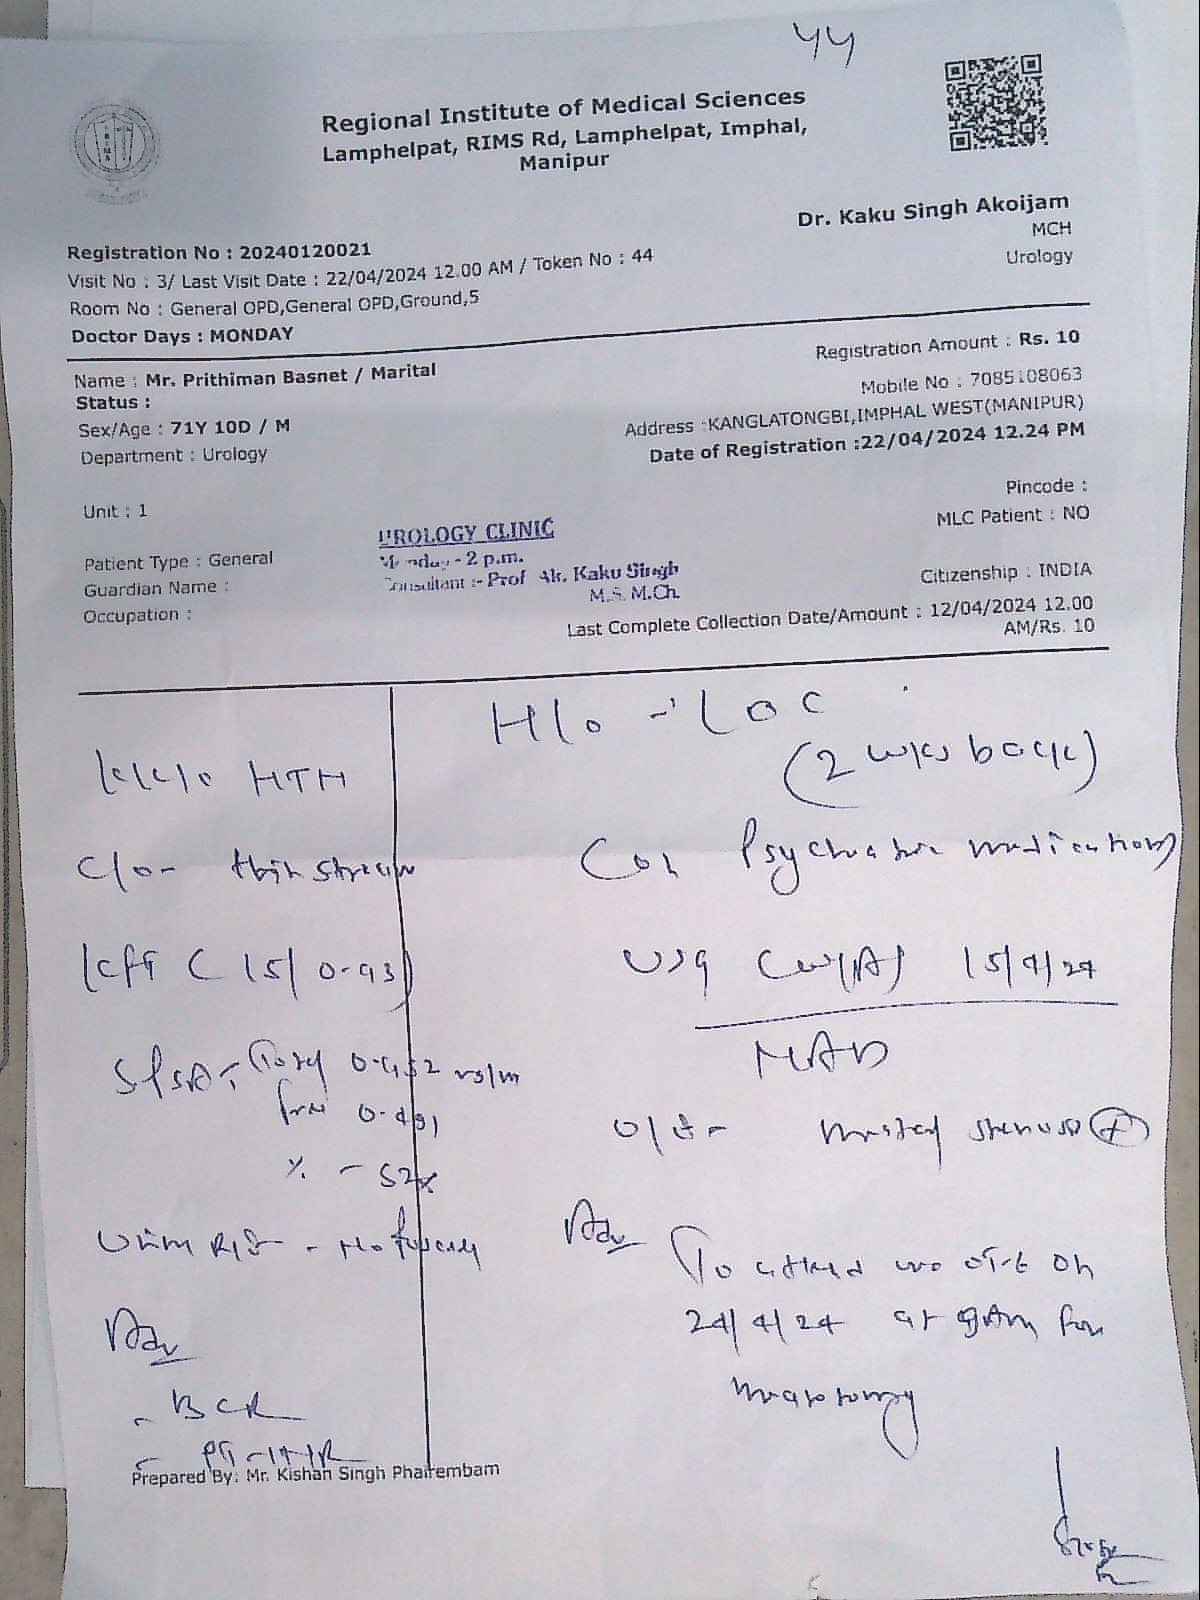 44
Regional Institute of Medical Sciences
Lamphelpat, RIMS Rd, Lamphelpat, Imphal,
Manipur
Dr. Kaku Singh Akoijam
MCH
Urology
Registration No : 20240120021
Visit No : 3/ Last Visit Date : 22/04/2024 12.00 AM / Token No : 44
Room No : General OPD,General OPD,Ground,5
Doctor Days : MONDAY
Registration Amount : Rs. 10
Name : Mr. Prithiman Basnet / Marital
Status :
Mobile No : 7085108063
Sex/Age : 71Y 10D / M
Address :KANGLATONGBI,IMPHAL WEST(MANIPUR)
Department : Urology
Date of Registration :22/04/2024 12.24 PM
Pincode :
Unit : 1
MLC Patient : NO
UROLOGY CLINIC
Monday - 2 p.m.
Consultant :- Prof Ak. Kaku Singh
M.S. M.Ch.
Patient Type : General
Guardian Name :
Citizenship : INDIA
Occupation :
Last Complete Collection Date/Amount : 12/04/2024 12.00
AM/Rs. 10
K/C/O HTN
C/o - thin stream
KFT ( 15/0.93)
S/PSA -
free 0.491
% - 52%
Urine R/E -
Adv
- BCR
- PT-INR
H/o - LOC
(2 wks back)
(on Psychiatric medications)
USG 15/4/24
NAD
O/E - meatal stenosis (+)
Adv
To attend OT-6 on
24/4/24 at 9 Am for
meatotomy
Prepared By: Mr. Kishan Singh Phairembam